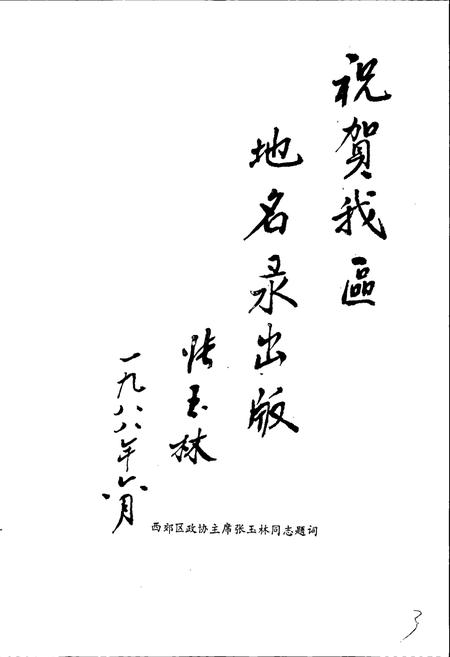 祝贺我區
地名录出版
张玉林
一九八八年六月
西郊区政协主席张玉林同志题词
3